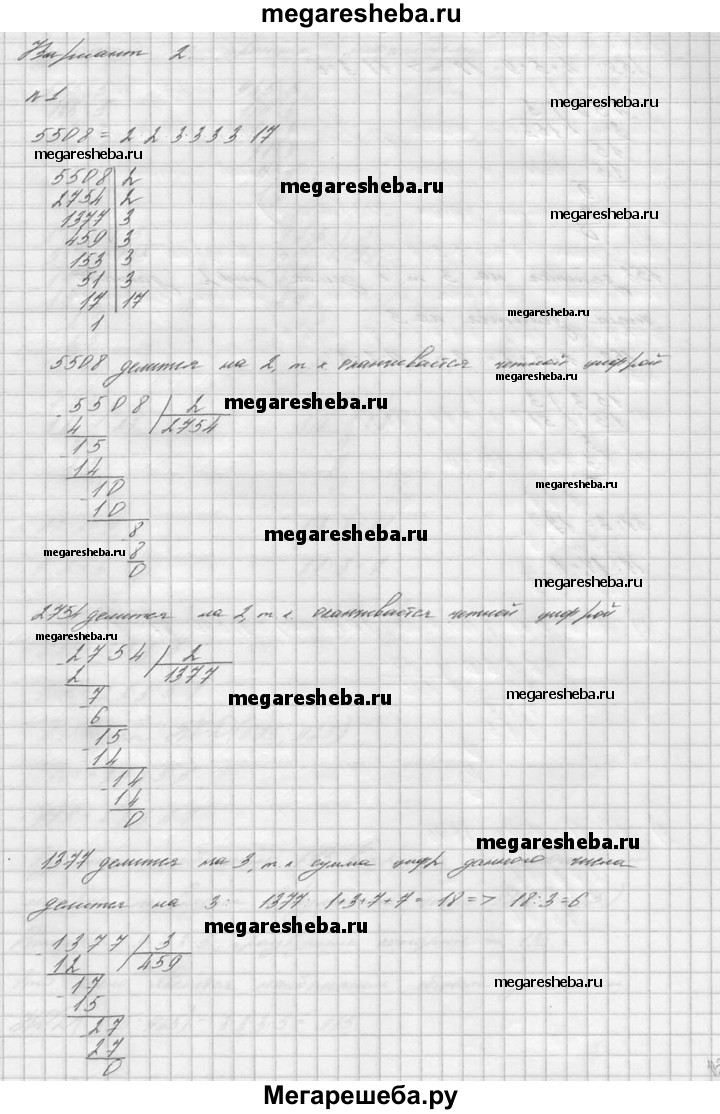 megaresheba.ru
Вариант 2.
№1.
megaresheba.ru
5508 = 2·2·3·3·3·3·17
megaresheba.ru
5508|2
megaresheba.ru
2754|2
megaresheba.ru
1377|3
459|3
153|3
51|3
17|17
megaresheba.ru
1
5508 делится на 2, т.к. оканчивается четной цифрой
megaresheba.ru
-5508|2
megaresheba.ru
4 2754
-15
14
megaresheba.ru
-10
10
-8
megaresheba.ru
megaresheba.ru
8
0
megaresheba.ru
2754 делится на 2, т.к. оканчивается четной цифрой
megaresheba.ru
-2754|2
2 1377
-7
megaresheba.ru
megaresheba.ru
6
-15
14
-14
14
0
megaresheba.ru
1377 делится на 3, т.к. сумма цифр данного числа
делится на 3: 1377: 1+3+7+7=18=> 18:3=6
megaresheba.ru
-1377|3
12 459
-17
megaresheba.ru
15
-27
27
0
Мегарешеба.ру